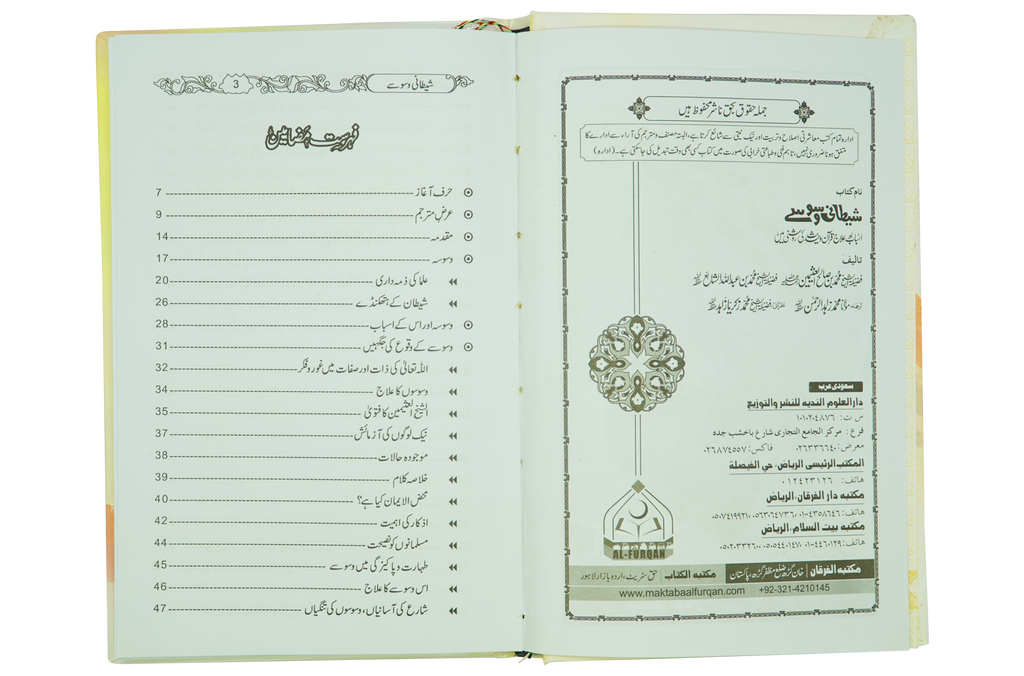 جملہ حقوق بحق ناشر محفوظ ہیں
ادارہ تمام کتب معاشرتی اصلاح و تربیت اور نیک نیتی سے شائع کرتا ہے، البتہ مصنف و مترجم کی آراء سے ادارے کا
متفق ہونا ضروری نہیں، تاہم فنی و طباعتی خرابی کی صورت میں کتاب کسی بھی وقت تبدیل کی جا سکتی ہے۔ (ادارہ)
نام کتاب
شیطانی وسوسے
اسباب اور علاج قرآن و حدیث کی روشنی میں
تالیف
فضیلۃ الشیخ محمد بن صالح العثیمین فضیلۃ الشیخ محمد بن عبداللہ الشائع
مولانا محمد زاہد الرحمٰن فضیلۃ الشیخ محمد زکریا زاہد
سعودی عرب
دار العلوم الندیه للنشر والتوزیع
س ت: ۱۰۱۰۲۰۴۸۷۶
فرع: مرکز الجامع التجاری شارع باخشب جده
معرض: ۰۲۶۳۳۶۶۴۰ فاکس: ۰۲۶۸۷۴۵۵۷
المکتب الرئیسی الریاض، حی الفیصلة
هاتف: ۰۱۲۴۲۳۱۲۶
مکتبه دار الفرقان، الریاض
هاتف: ۰۱-۴۳۵۸۶۴۶، ۰۵۶۳۰۶۴۷۳۶، ۰۵۰۷۴۱۹۹۲۱
مکتبه بیت السلام، الریاض
هاتف: ۰۱-۴۴۶۰۱۲۹
AL-FURQAN
مکتبه الفرقان خان گڑھ ضلع مظفر گڑھ، پاکستان مکتبه الکتاب حق سٹریٹ، اردو بازار لاہور
www.maktabaalfurqan.com +92-321-4210145
شیطانی وسوسے 3
فہرست مضامین
حرف آغاز 7
عرض مترجم 9
مقدمہ 14
وسوسہ 17
علما کی ذمہ داری 20
شیطان کے ہتھکنڈے 26
وسوسہ اور اس کے اسباب 28
وسوسے کے وقوع کی جگہیں 31
اللہ تعالیٰ کی ذات اور صفات میں غور و فکر 32
وسوسوں کا علاج 34
الشیخ العثیمین کا فتویٰ 35
نیک لوگوں کی آزمائش 37
موجودہ حالات 38
خلاصہ کلام 39
محض الایمان کیا ہے؟ 40
اذکار کی اہمیت 42
مسلمانوں کو نصیحت 44
طہارت و پاکیزگی میں وسوسے 45
اس وسوسے کا علاج 46
شارع کی آسانیاں، وسوسوں کی تنگیاں 47